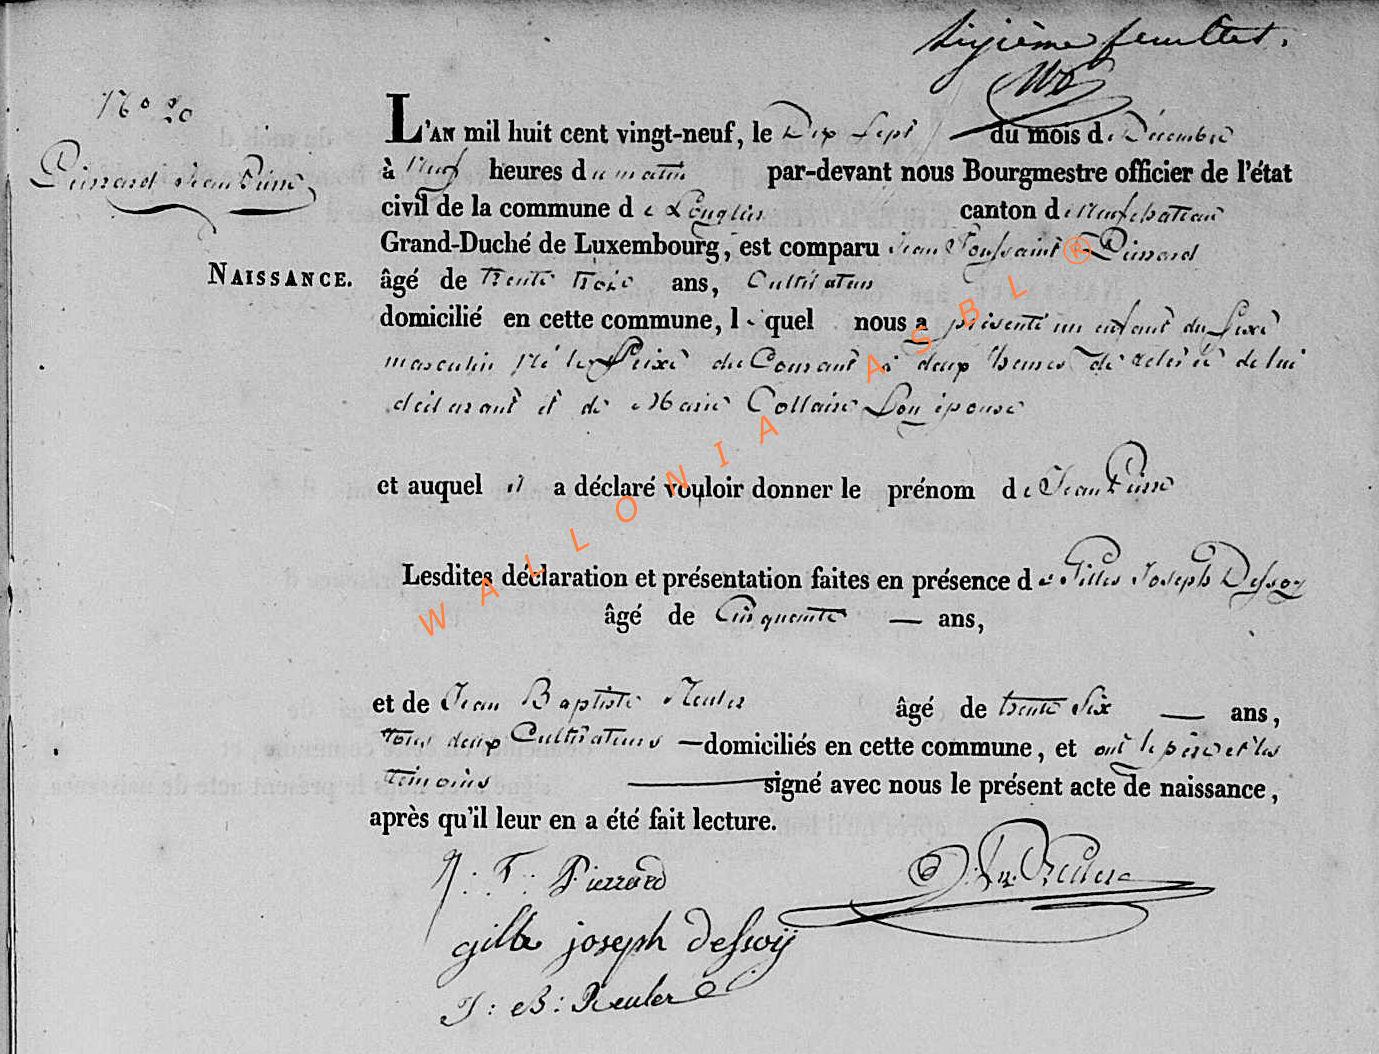 Sixième feuillet.
N° 20
L'AN mil huit cent vingt-neuf, le Dix Sept du mois de Décembre
Pierrard Jean Pierre
à Neuf heures du matin par-devant nous Bourgmestre officier de l'état
civil de la commune de Léglise canton de Neufchateau
Grand-Duché de Luxembourg, est comparu Jean Toussaint Pierrard
NAISSANCE.
âgé de trente trois ans, Cultivateur
domicilié en cette commune, lequel nous a présenté un enfant du Sexe
masculin né le Seize du Courant à deux heures de relevée de lui
déclarant et de Marie Collaire Son épouse
et auquel il a déclaré vouloir donner le prénom de Jean Pierre
Lesdites déclaration et présentation faites en présence de Gilles Joseph Dessoy
âgé de Cinquante ans,
et de Jean Baptiste Reuler âgé de trente Six ans,
tous deux Cultivateurs domiciliés en cette commune, et ont le père et les
témoins signé avec nous le présent acte de naissance,
après qu'il leur en a été fait lecture.
J: T: Pierrard
gille joseph Dessoÿ
J: B: Reuler
WALLONIA ASBL ®